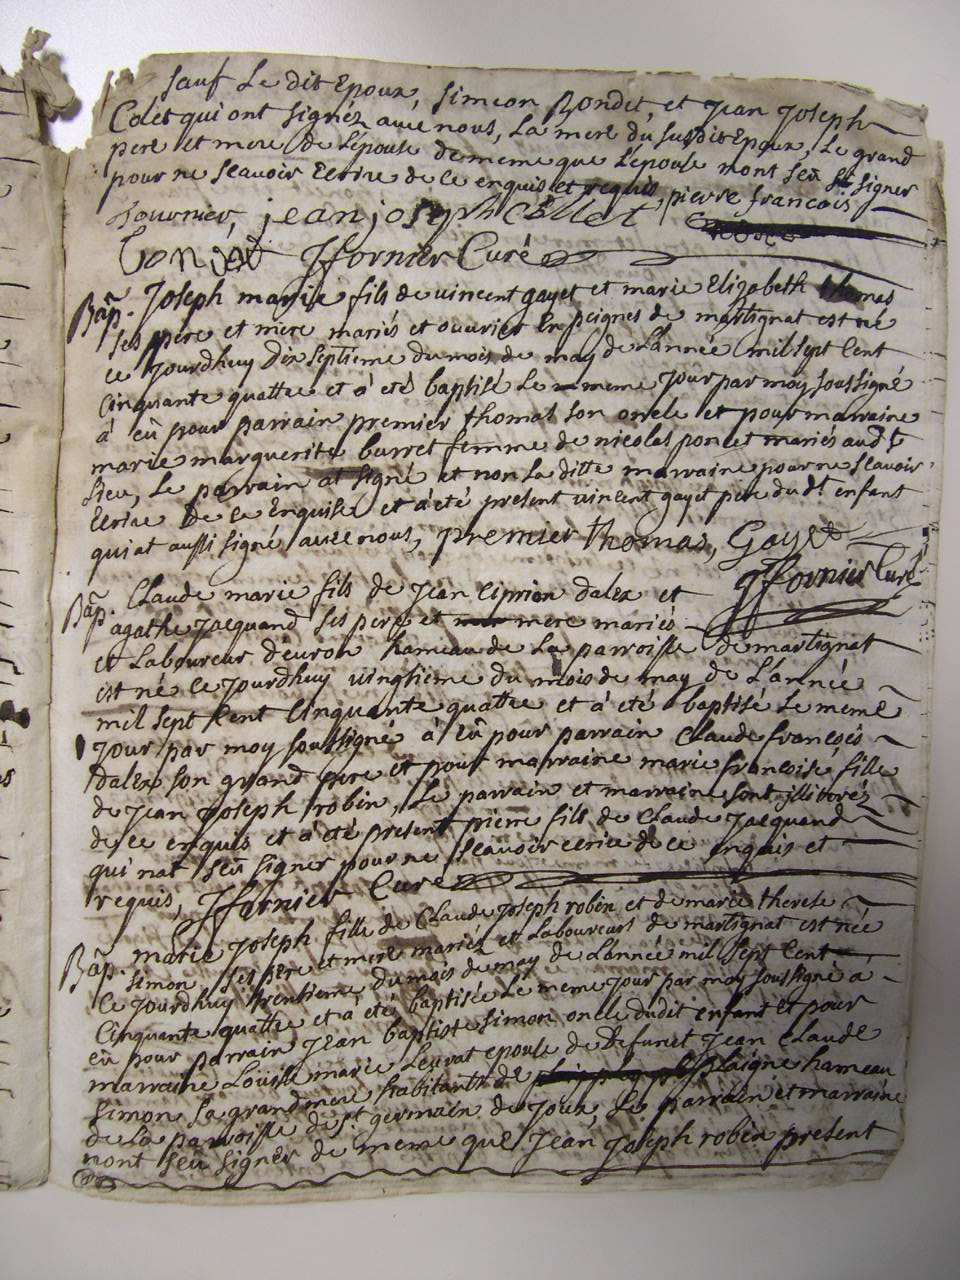 sauf Le dit Epoux, Simeon Bondet, et Jean Joseph
Colet qui ont signéz avec nous, La mere du susdit Epoux, Le grand
pere et mere de L'épouse de meme que L'épouse nont seu signer
pour ne scavoir Ecrire de ce enquis et requis, pierre francois
fournier, jean joseph collet
Bondet JffornierCuré
Bâp. Joseph marie fils de vincent gayet et marie Elizabeth thomas
ses pere et mere mariés et ouvrier En peignes de martignat est né
ce Jourdhuy Dix septieme du mois de may de L'année mil sept Cent
Cinquante quattre et à été baptisé Le meme Jour par moy soussigné
à eû pour parrain premier thomas son oncle et pour marraine
marie marguerite burret femme de nicolas poncet mariés aud.t
Lieu, Le parrain at signé et non La ditte marraine pour ne scavoir
Ecrire De ce Enquise et à été present vincent gayet pere du d.t enfant
qui at aussi signé avec nous, premier thomas, Gayet
JffornierCuré
Bâp. Claude marie fils de Jean Ciprien dalex et
agathe Jacquand ses pere et mere mariés
et Laboureur d'évron hameau de La parroisse de martignat
est né ce Jourdhuy vingtieme du mois de may de L'année
mil sept Cent Cinquante quattre et à été baptisé Le meme
Jour par moy soussigné à eû pour parrain Claude françois
dalex son grand pere et pour marraine marie francoise fille
de Jean Joseph robin, Le parrain et marraine sont illitéréz
de ce enquis et à été présent pierre fils de Claude Jacquand
qui nat seû signer pour ne scavoir ecrire de ce enquis et
requis, Jffornier Curé
Bâp. marie Joseph fille de Claude Joseph robin et de marie therese
simon ses pere et mere mariéz et Laboureurs de martignat est née
Ce Jourdhuy trentieme du mois de may de L'année mil sept Cent
Cinquante quattre et à été baptisée Le meme jour par moy soussigné a
eû pour parrain Jean baptiste simon oncle dudit enfant et pour
marraine Louise marie Leuvat epouse de Defunct Jean Claude
simon sa grand mere habitante de plaigne hameau
de La parroisse de s.t germain de Joux, Le parrain et marraine
nont seû signer de meme que Jean Joseph robin present